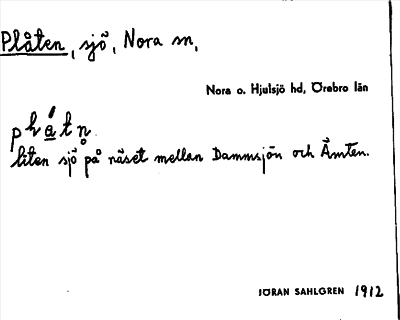 Plåten, sjö, Nora sn.
Nora o. Hjulsjö hd, Örebro län
liten sjö på näset mellan Dammsjön och Åmten.
JÖRAN SAHLGREN 1912